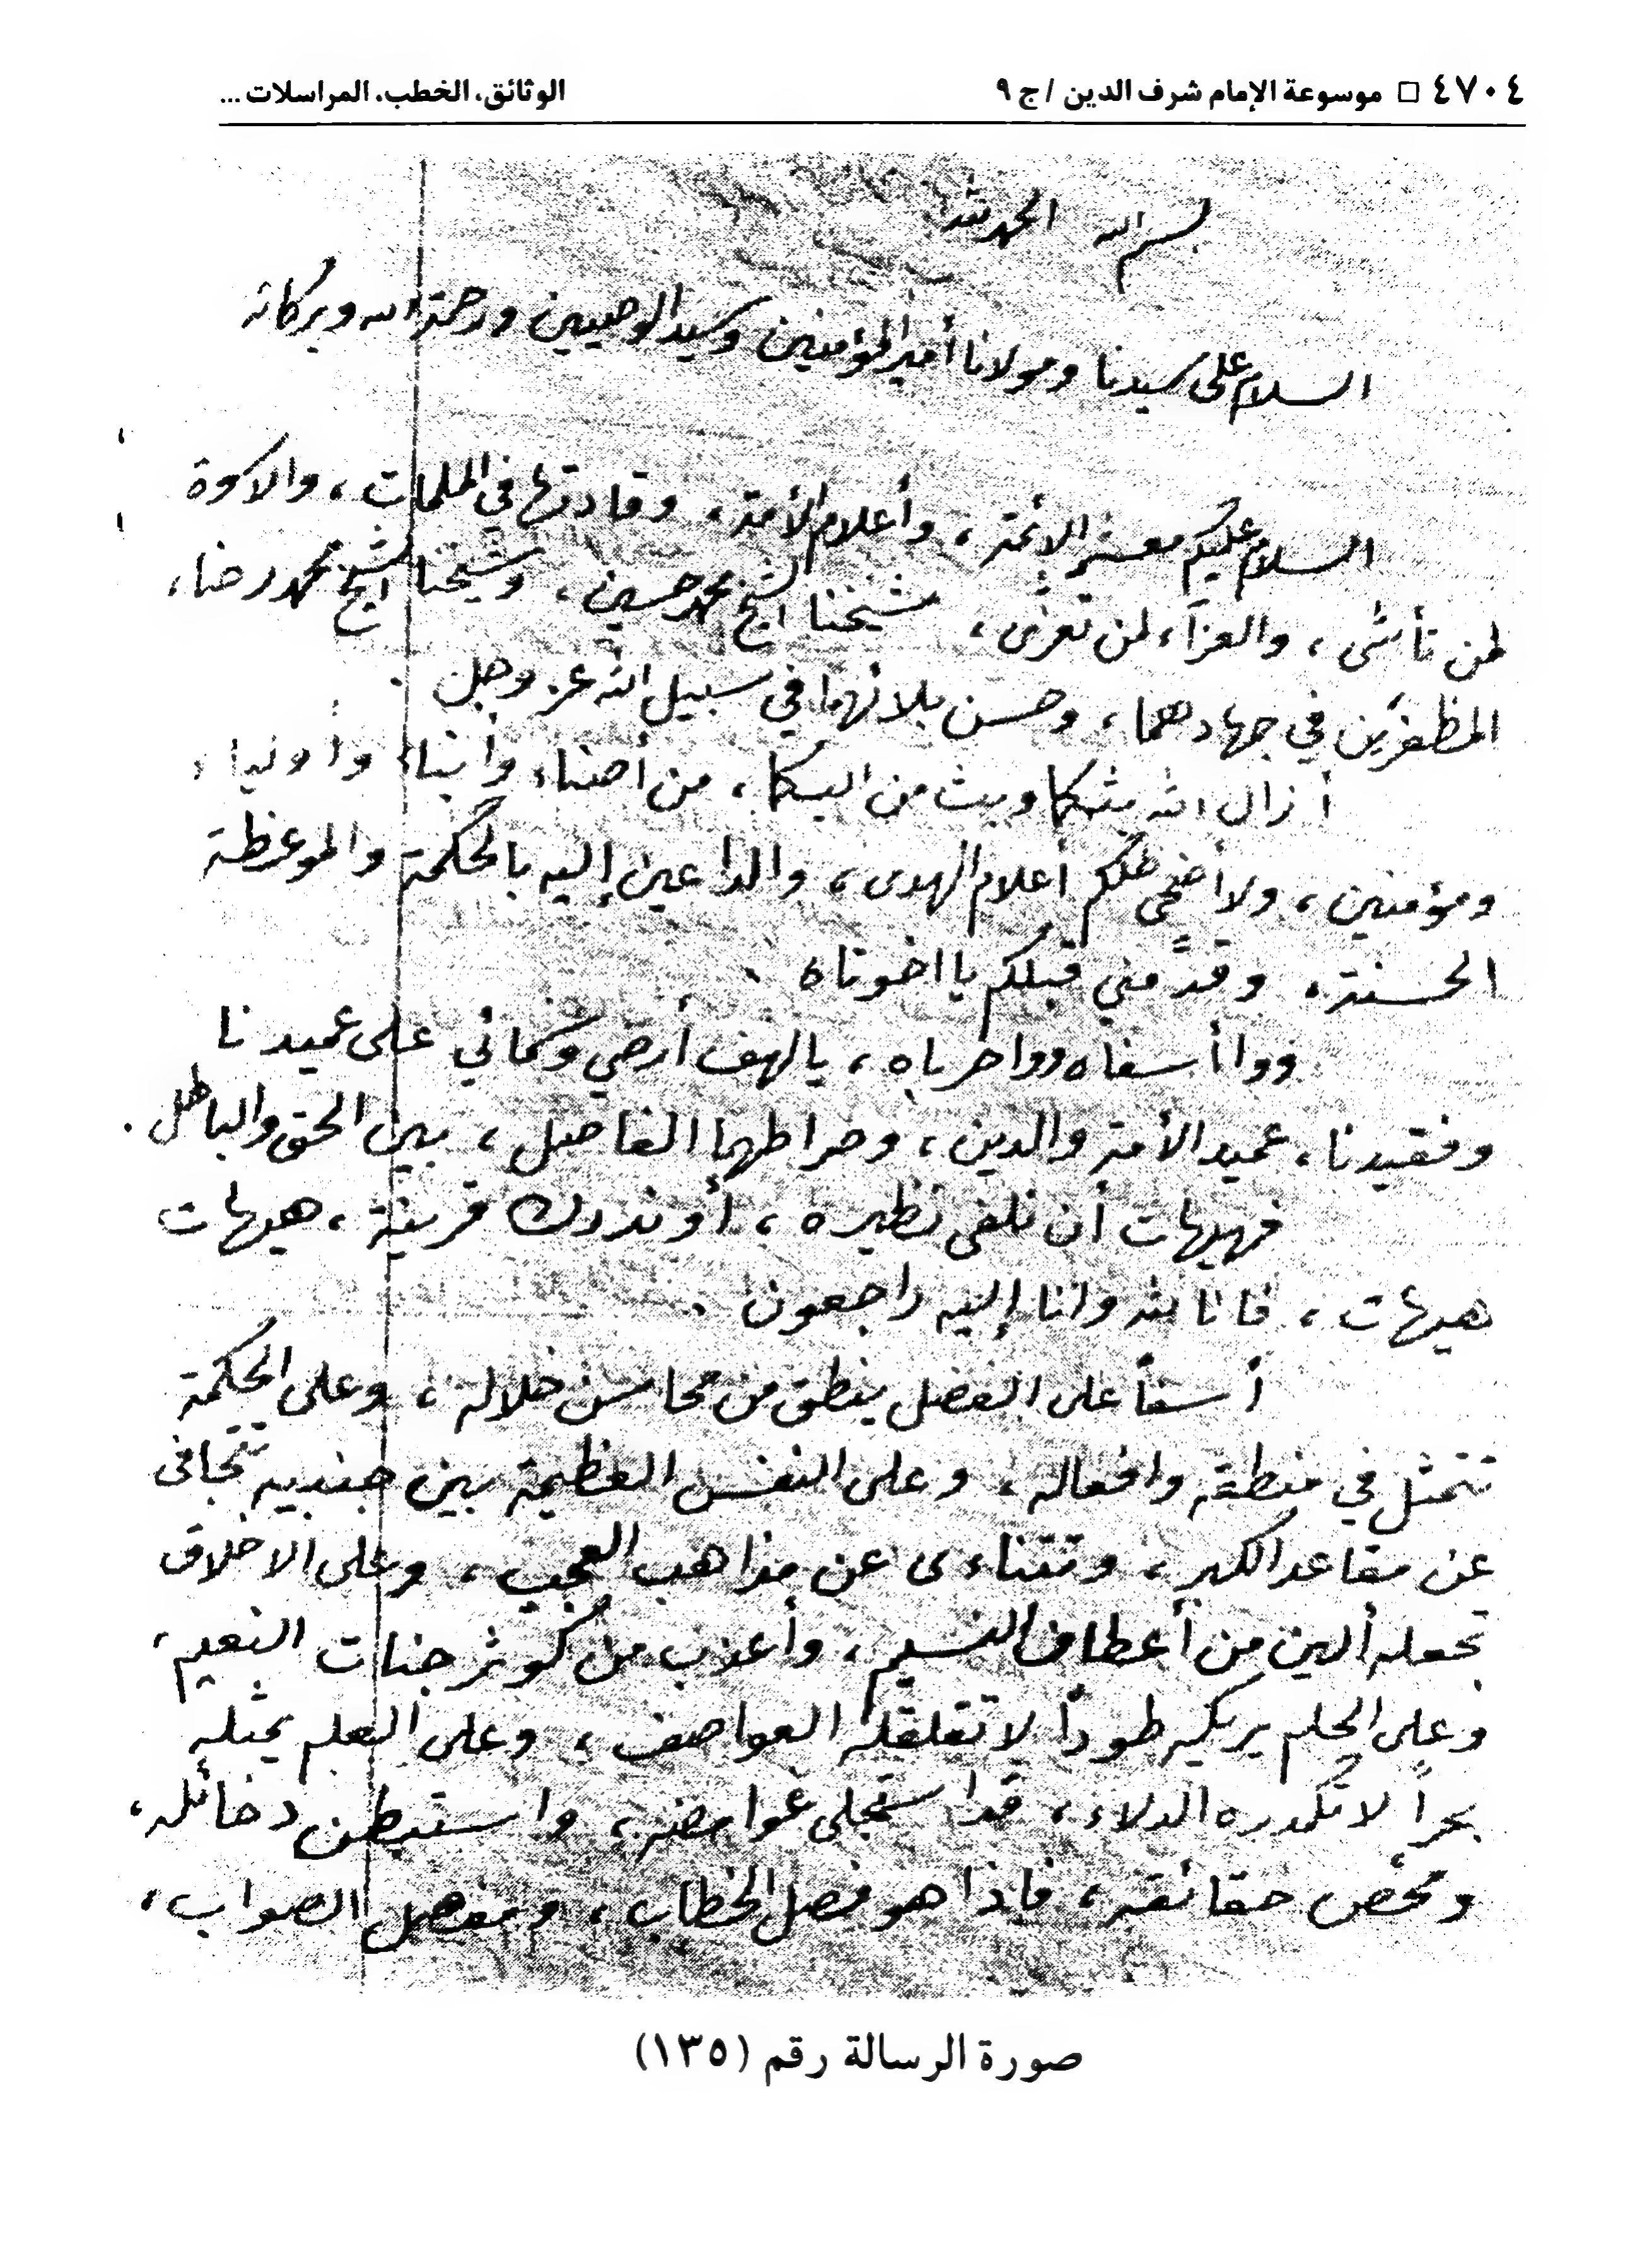 ٤٧٠٤ □ موسوعة الإمام شرف الدين / ج ٩
الوثائق، الخطب، المراسلات ...
بسم الله الحمد لله
السلام على سيدنا ومولانا أمير المؤمنين وسيد الوصيين ورحمة الله وبركاته
السلام عليكم معشر الائمة، وأعلام الأمة، وقادتها في الملمات، والاسوة
لمن تأسّى، والعزاء لمن تعزّى، شيخنا الشيخ محمد حسين، وشيخنا الشيخ محمد رضا،
المظفرين في جهادهما، وحسن بلائهما في سبيل الله عز وجل.
أزال الله بثكما وبث من اليكما، من أصناء وأبناء وأولياء
ومؤمنين، ولا أضحى ظلكم أعلام الهدى، والداعين إليه بالحكمة والموعظة
الحسنة، وقدّمني قبلكم يا اخوتاه
ووا أسفاه وواحرباه، يالهف أرضي وسمائي على عميدنا
وفقيدنا، عميد الأمة والدين، وصراطهما الفاصل، بين الحق والباطل.
فهيهات أن نلفى نظيره، أو ندرك قرينة، هيهات
هيهات، فانا لله وانا إليه راجعون.
أسفاً على الفضل ينطق من محاسن خلاله، وعلى الحكمة
تتمثل في منطقه وافعاله، وعلى النفس العظيمة بين جنبيه تتجافى
عن مقاعد الكبر، وتتناءى عن مذاهب العجب، وعلى الاخلاق
تجعله ألين من أعطاف النسيم، وأعذب من كوثر جنات النعيم،
وعلى الحلم يريكه طوداً لا تقلقله العواصف، وعلى العلم يمثله
بحراً لا تكدره الدلاء، قد استجلى غوامضه، واستبطن دخائله،
ومحّص حقائقه، فاذا هو فصل الخطاب، ومفصل الصواب،
صورة الرسالة رقم (١٣٥)